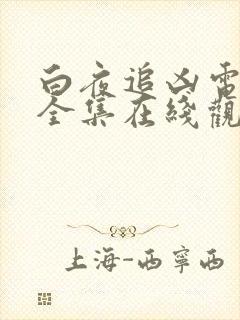 白夜追凶電
全集在綫觀
上海-西寧西